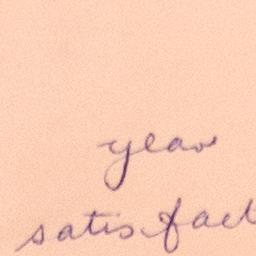 year
satisfact